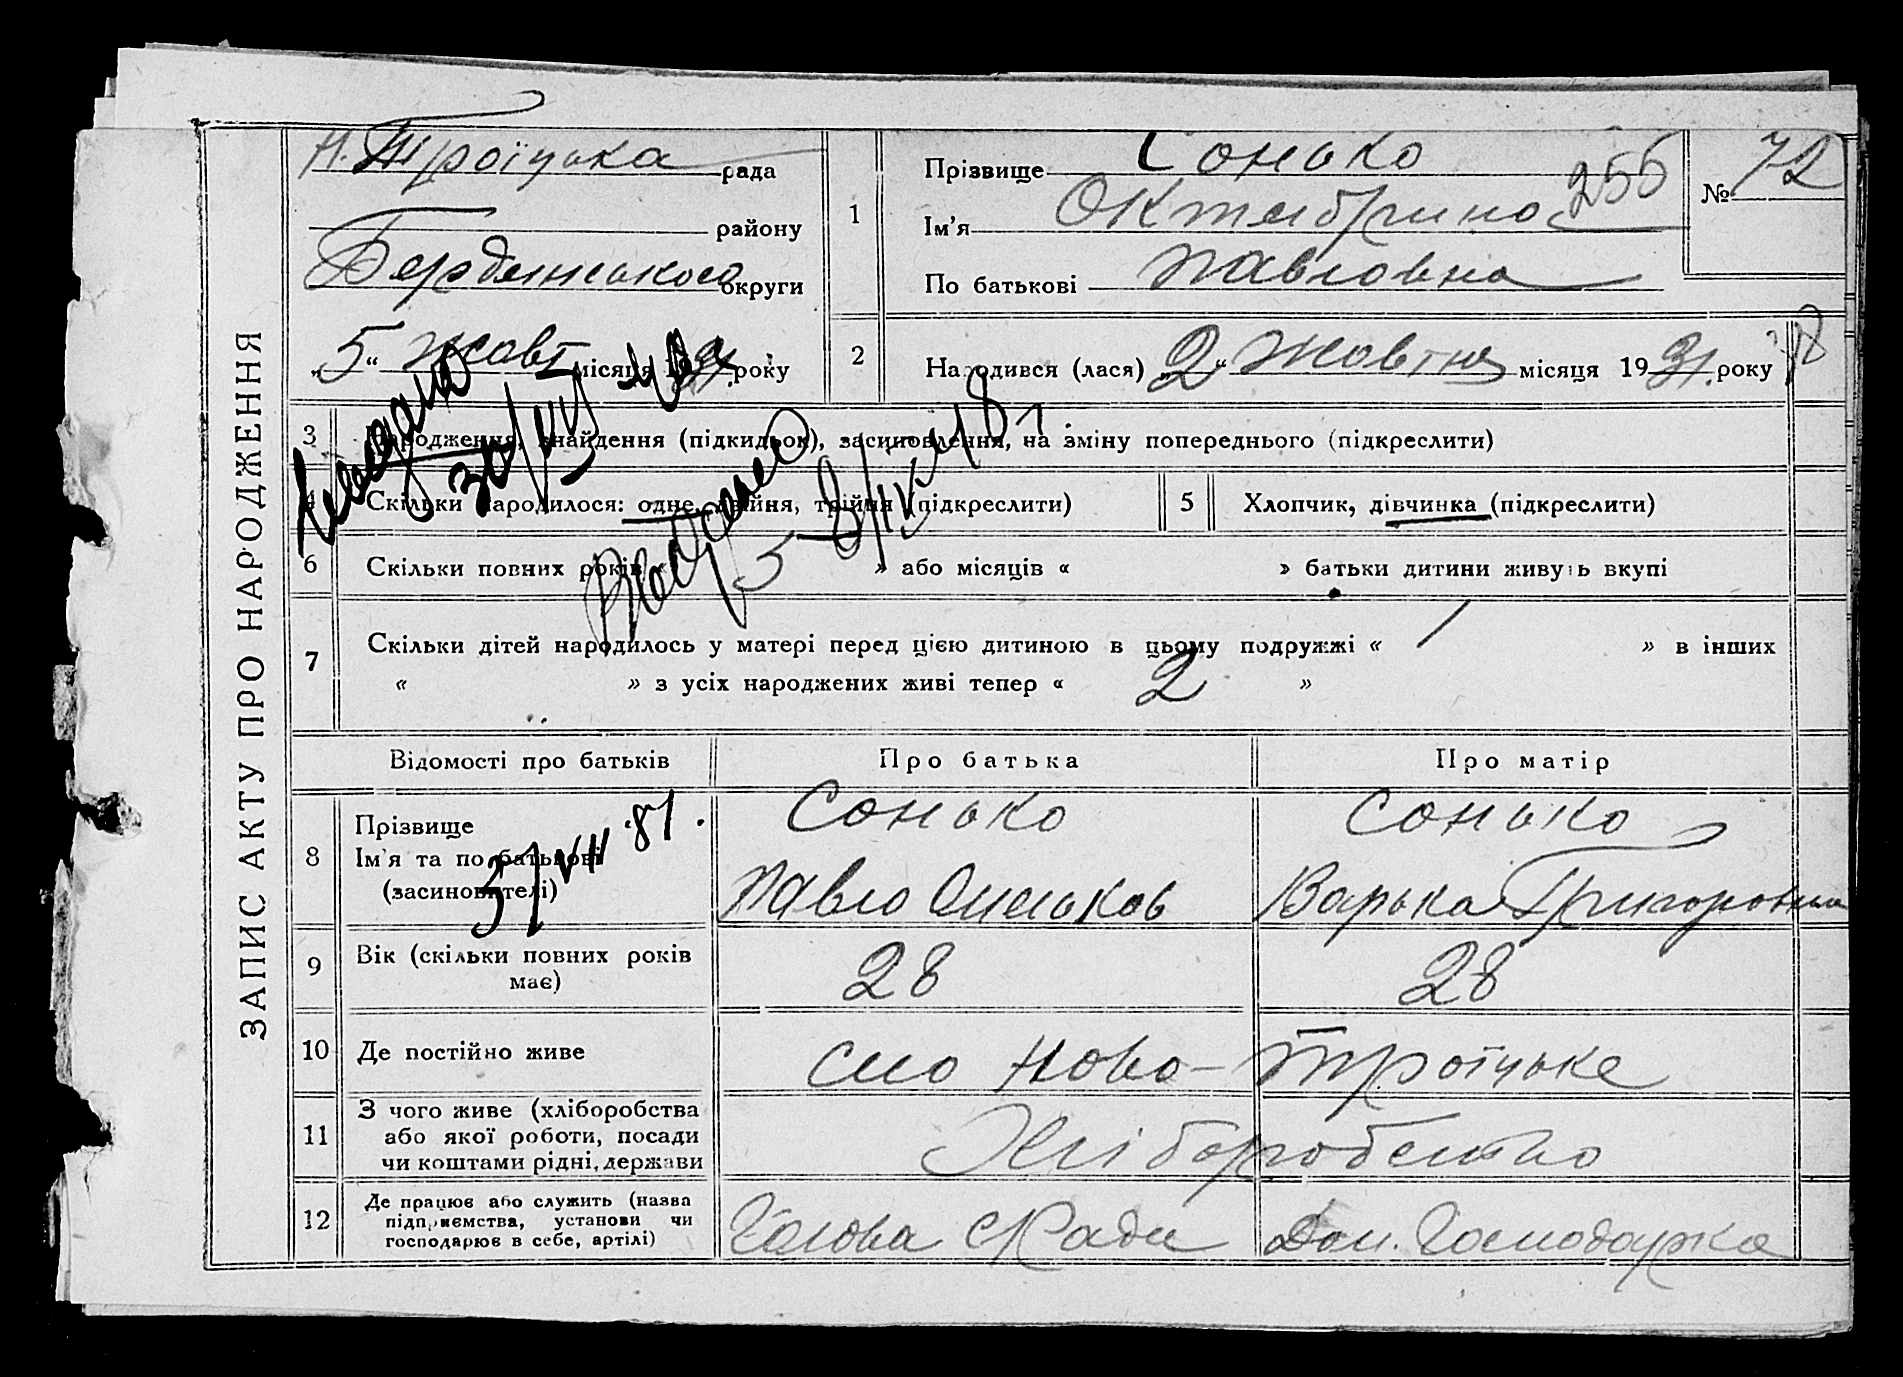 ЗАПИС АКТУ ПРО НАРОДЖЕННЯ
Н. Троїцька рада
району
Бердянського округи
„5“ жовт місяця року
1
Прізвище Сонько
Ім'я Октябрина 256
По батькові Павловна
№ 72
2 Народився (лася) „2“ Жовтня місяця 1931. року
3 Народження, знайдення (підкидьок), засиновлення, на зміну попереднього (підкреслити)
30/VII
8/IV 48 г.
4 Скільки народилося: одне, двійня, трійня (підкреслити)
5 Хлопчик, дівчинка (підкреслити)
6 Скільки повних років « » або місяців « » батьки дитини живуть вкупі
7 Скільки дітей народилось у матері перед цією дитиною в цьому подружжі « 1 » в інших
« » з усіх народжених живі тепер « 2 »
Відомості про батьків Про батька Про матір
8 Прізвище Сонько Сонько
Ім'я та по батькові
(засиновителі) Павло Варька Григоровна
VII 81.
9 Вік (скільки повних років має) 28 28
10 Де постійно живе село Ново-Троїцьке
11 З чого живе (хліборобства
або якої роботи, посади
чи коштами рідні, держави Хліборобство
12 Де працює або служить (назва
підприємства, установи чи
господарює в себе, артілі) Голова С/Ради Дом. Господарка